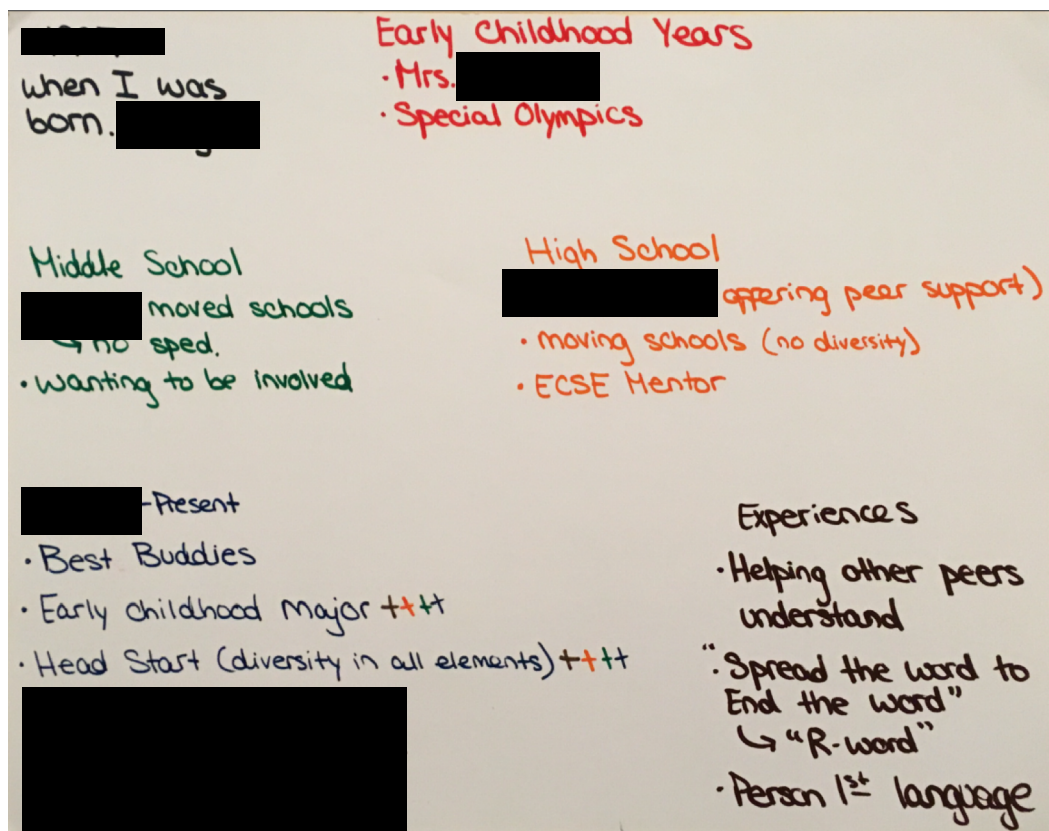 when I was
born.
Early Childhood Years
· Mrs.
· Special Olympics
Middle School
moved schools
↳ no sped.
· wanting to be involved
High School
offering peer support)
· moving schools (no diversity)
· ECSE Mentor
-Present
· Best Buddies
· Early childhood Major ++++
· Head Start (diversity in all elements) ++++
Experiences
· Helping other peers
understand
· "Spread the word to
End the word"
↳ "R-word"
· Person 1st language